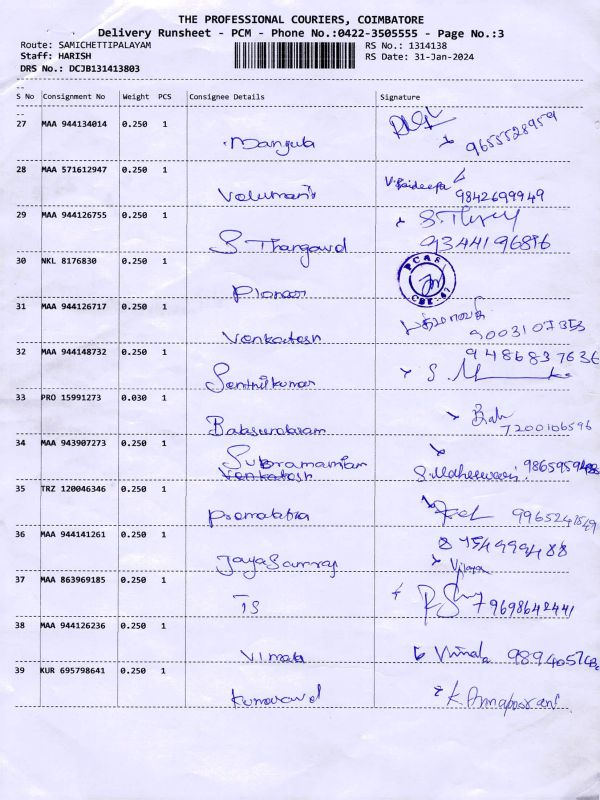 THE PROFESSIONAL COURIERS, COIMBATORE
Delivery Runsheet - PCM - Phone No.:0422-3505555 - Page No.:3
Route: SAMICHETTIPALAYAM RS No.: 1314138
Staff: HARISH RS Date: 31-Jan-2024
DRS No.: DCJB131413803
S No Consignment No Weight PCS Consignee Details Signature
27 MAA 944134014 0.250 1
Manjula 9655528959
28 MAA 571612947 0.250 1
Velumani 9842699949
29 MAA 944126755 0.250 1
S Thangavel 9344196896
30 NKL 8176830 0.250 1 PCAS
Pioneer CBE-47
31 MAA 944126717 0.250 1
Venkatesh
32 MAA 944148732 0.250 1 9486837636
Senthilkumar S.
33 PRO 15991273 0.030 1
7200106596
34 MAA 943907273 0.250 1
Subramaniam
Venkatesh S.Maheswari
35 TRZ 120046346 0.250 1
Premalatha
36 MAA 944141261 0.250 1
Vijaya
37 MAA 863969185 0.250 1
TS 9698642441
38 MAA 944126236 0.250 1
Vimala Vimala
39 KUR 695798641 0.250 1
Kumaravel K. Annapoorani